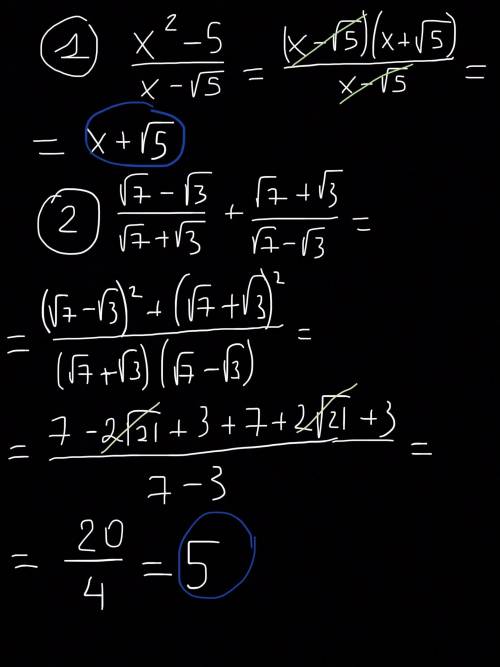 1 (x² - 5)/(x - √5) = ((x - √5)(x + √5))/(x - √5) =
= x + √5
2 (√7 - √3)/(√7 + √3) + (√7 + √3)/(√7 - √3) =
= ((√7 - √3)² + (√7 + √3)²)/((√7 + √3)(√7 - √3)) =
= (7 - 2√21 + 3 + 7 + 2√21 + 3)/(7 - 3) =
= 20/4 = 5